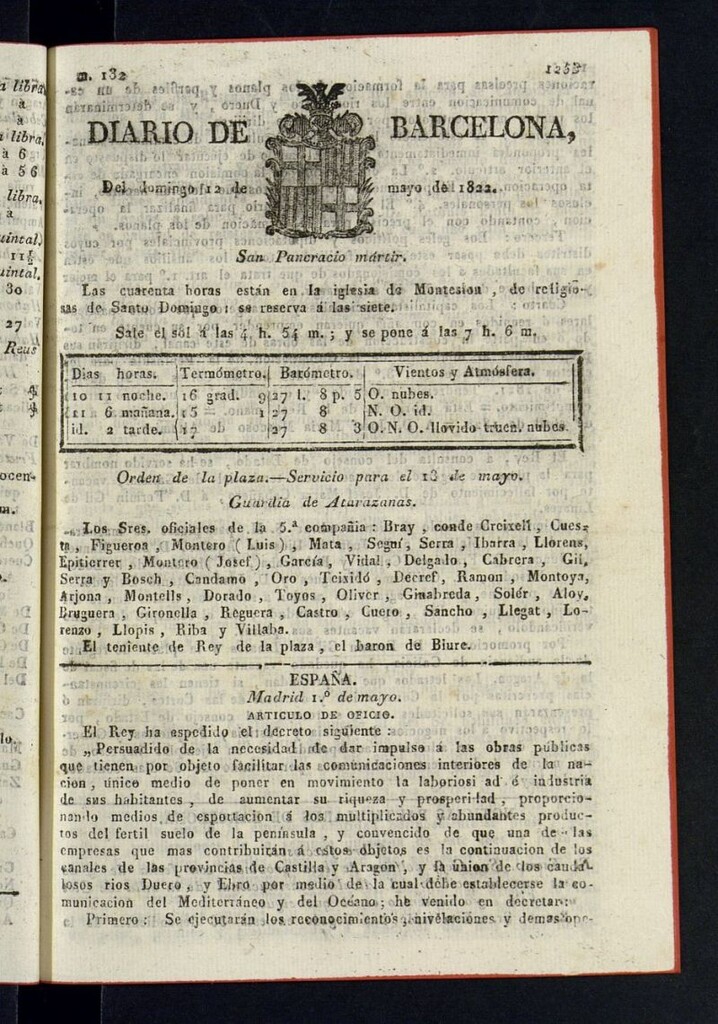 a libra
à
a libra.
à 6
à 56
libra,
a
uintal.
11½
uintal.
30
27
Reus
ocen-
m.
lo.
n. 132
1253
DIARIO DE BARCELONA,
Del domingo 12 de mayo de 1822.
San Pancracio mártir.
Las cuarenta horas están en la iglesia de Montesion, de religio-
sas de Santo Domingo: se reserva á las siete.
Sale el sol á las 4 h. 54 m.; y se pone á las 7 h. 6 m.
Dias horas. Termómetro. Barómetro. Vientos y Atmósfera.
10 11 noche. 16 grad. 9 27 l. 8 p. 5 O. nubes.
11 6 mañana. 15 1 27 8 N. O. id.
id. 2 tarde. 17 27 8 3 O. N. O. llovido truen. nubes.
Orden de la plaza.—Servicio para el 13 de mayo.
Guardia de Atarazanas.
Los Sres. oficiales de la 5.ª compañia: Bray, conde Creixell, Cues-
ta, Figueroa, Montero (Luis), Mata, Seguí, Serra, Ibarra, Llorens,
Epitierrer, Montero (Josef), García, Vidal, Delgado, Cabrera, Gil,
Serra y Bosch, Candamo, Oro, Teixidó, Decref, Ramon, Montoya,
Arjona, Montells, Dorado, Toyos, Oliver, Ginabreda, Solér, Aloy,
Bruguera, Gironella, Reguera, Castro, Cueto, Sancho, Llegat, Lo-
renzo, Llopis, Riba y Villaba.
El teniente de Rey de la plaza, el baron de Biure.
ESPAÑA.
Madrid 1.º de mayo.
ARTICULO DE OFICIO.
El Rey ha espedido el decreto siguiente:
„Persuadido de la necesidad de dar impulso á las obras públicas
que tienen por objeto facilitar las comunicaciones interiores de la na-
cion, único medio de poner en movimiento la laboriosi ad é industria
de sus habitantes, de aumentar su riqueza y prosperidad, proporcio-
nando medios de esportacion á los multiplicados y abundantes produc-
tos del fertil suelo de la península, y convencido de que una de las
empresas que mas contribuirán á estos objetos es la continuacion de los
canales de las provincias de Castilla y Aragon, y la union de los cauda-
losos rios Duero, y Ebro por medio de la cual debe establecerse la co-
municacion del Mediterráneo y del Océano; he venido en decretar:
Primero: Se ejecutarán los reconocimientos, nivelaciones y demas ope-